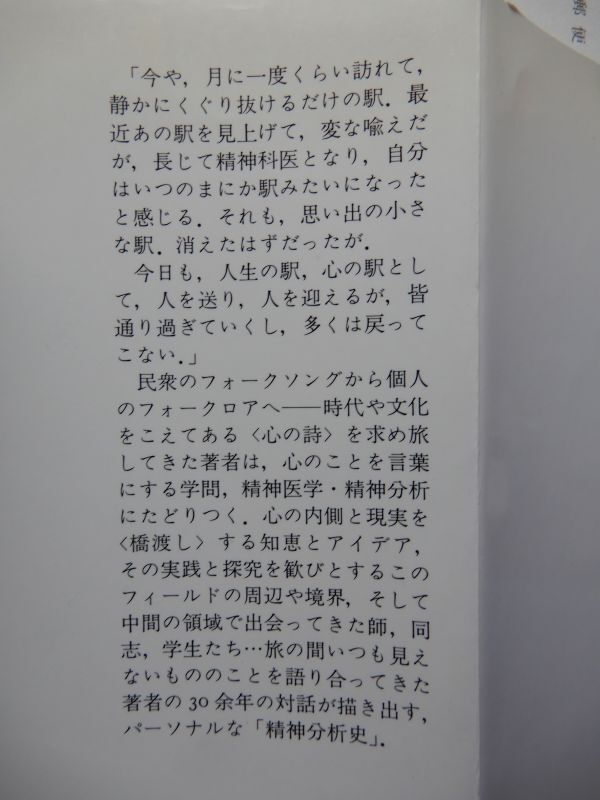 郵便
「今や，月に一度くらい訪れて，
静かにくぐり抜けるだけの駅．最
近あの駅を見上げて，変な喩えだ
が，長じて精神科医となり，自分
はいつのまにか駅みたいになった
と感じる．それも，思い出の小さ
な駅．消えたはずだったが．
今日も，人生の駅，心の駅とし
て，人を送り，人を迎えるが，皆
通り過ぎていくし，多くは戻って
こない．」
民衆のフォークソングから個人
のフォークロアへ――時代や文化
をこえてある〈心の詩〉を求め旅
してきた著者は，心のことを言葉
にする学問，精神医学・精神分析
にたどりつく．心の内側と現実を
〈橋渡し〉する知恵とアイデア，
その実践と探究を歓びとするこの
フィールドの周辺や境界，そして
中間の領域で出会ってきた師，同
志，学生たち…旅の間いつも見え
ないもののことを語り合ってきた
著者の30余年の対話が描き出す，
パーソナルな「精神分析史」．